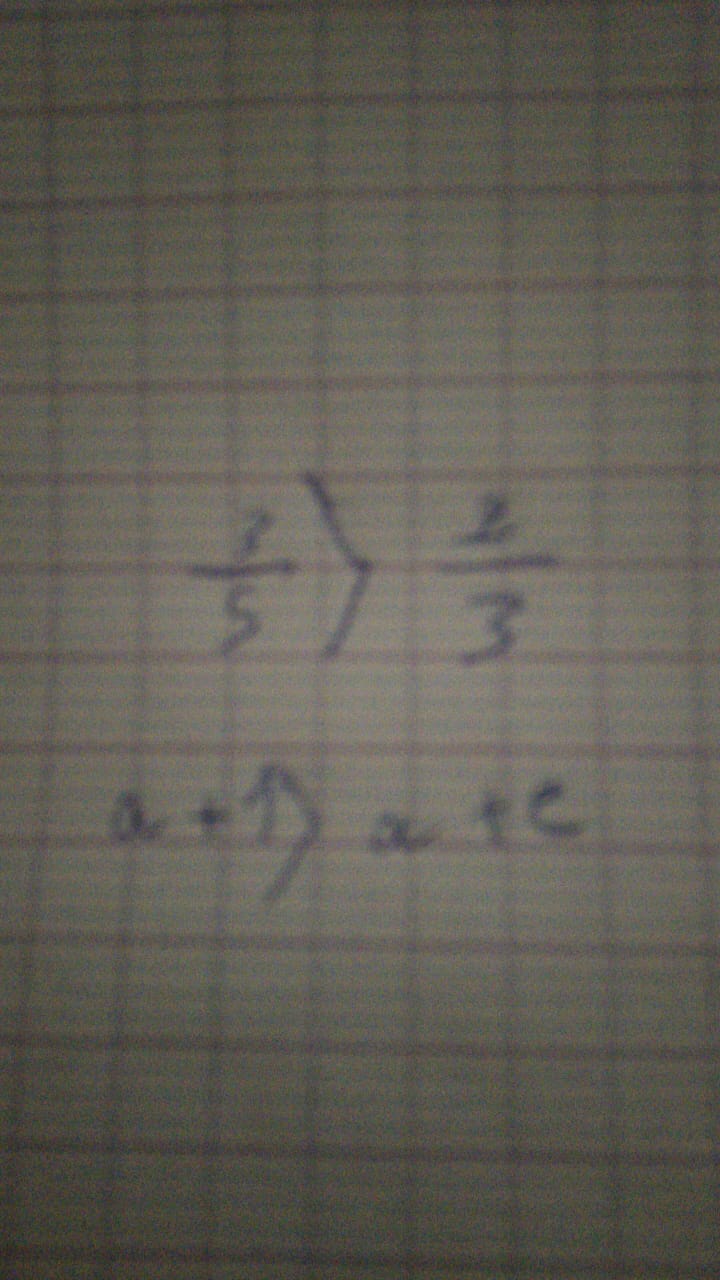 /5 > 2/3
a + 1 > a + c